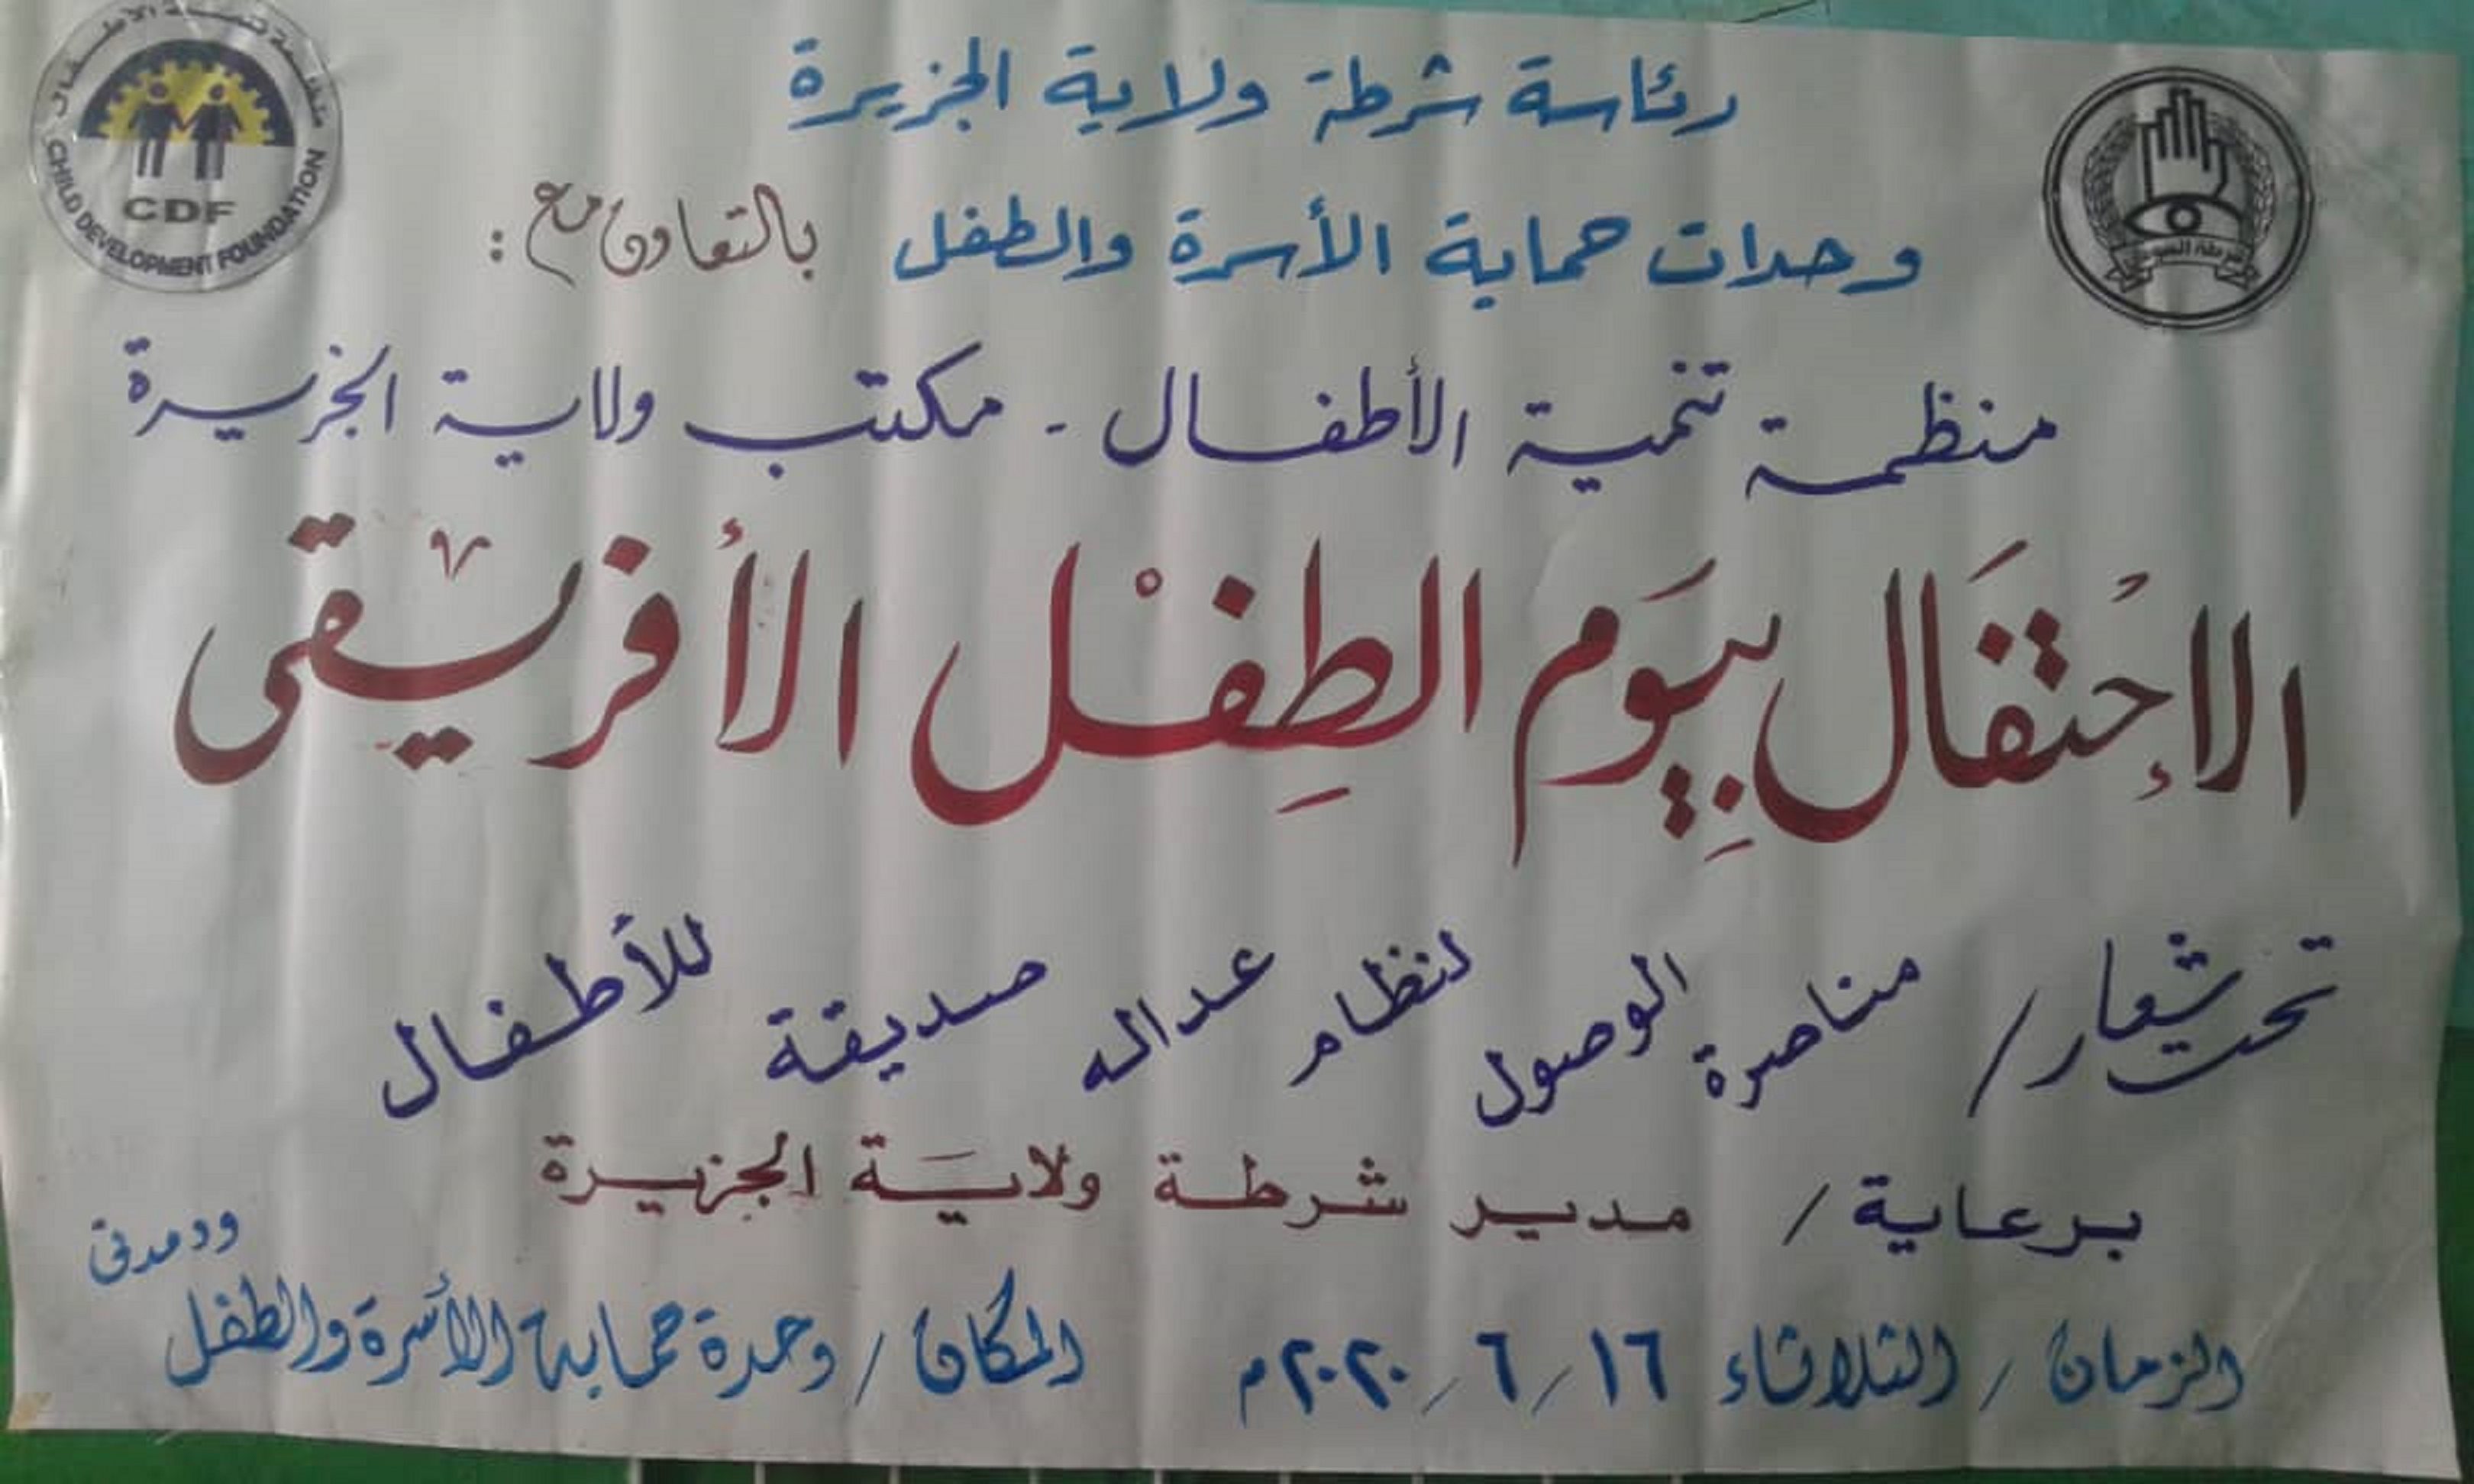 رئاسة شرطة ولاية الجزيرة
وحدات حماية الأسرة والطفل بالتعاون مع :
منظمة تنمية الأطفال - مكتب ولاية الجزيرة
الإحتفال بيوم الطفل الأفريقى
تحت شعار / مناصرة الوصول لنظام عداله صديقة للأطفال
برعاية / مدير شرطة ولاية الجزيرة
الزمان / الثلاثاء ١٦ / ٦ / ٢٠٢٠م المكان / وحدة حماية الأسرة والطفل
ودمدنى
منظمة تنمية الأطفال
CDF
CHILD DEVELOPMENT FOUNDATION